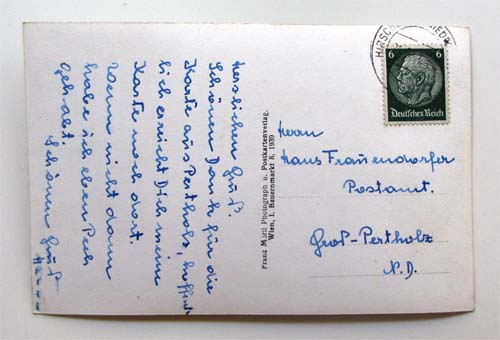 Herzlichen Gruß.
Schönen Dank für die
Karte aus Pertholz, hoffent
lich erreicht Dich meine
Karte noch dort.
Wenn nicht dann
habe ich eben Pech
gehabt.
Schönen Gruß
Franz Mörtl Photograph u. Postkartenverlag.
Wien, I. Bauernmarkt 8, 1939
6 6
Deutsches Reich
Herrn
Hans Frauendorfer
Postamt.
Groß-Pertholz
N.D.